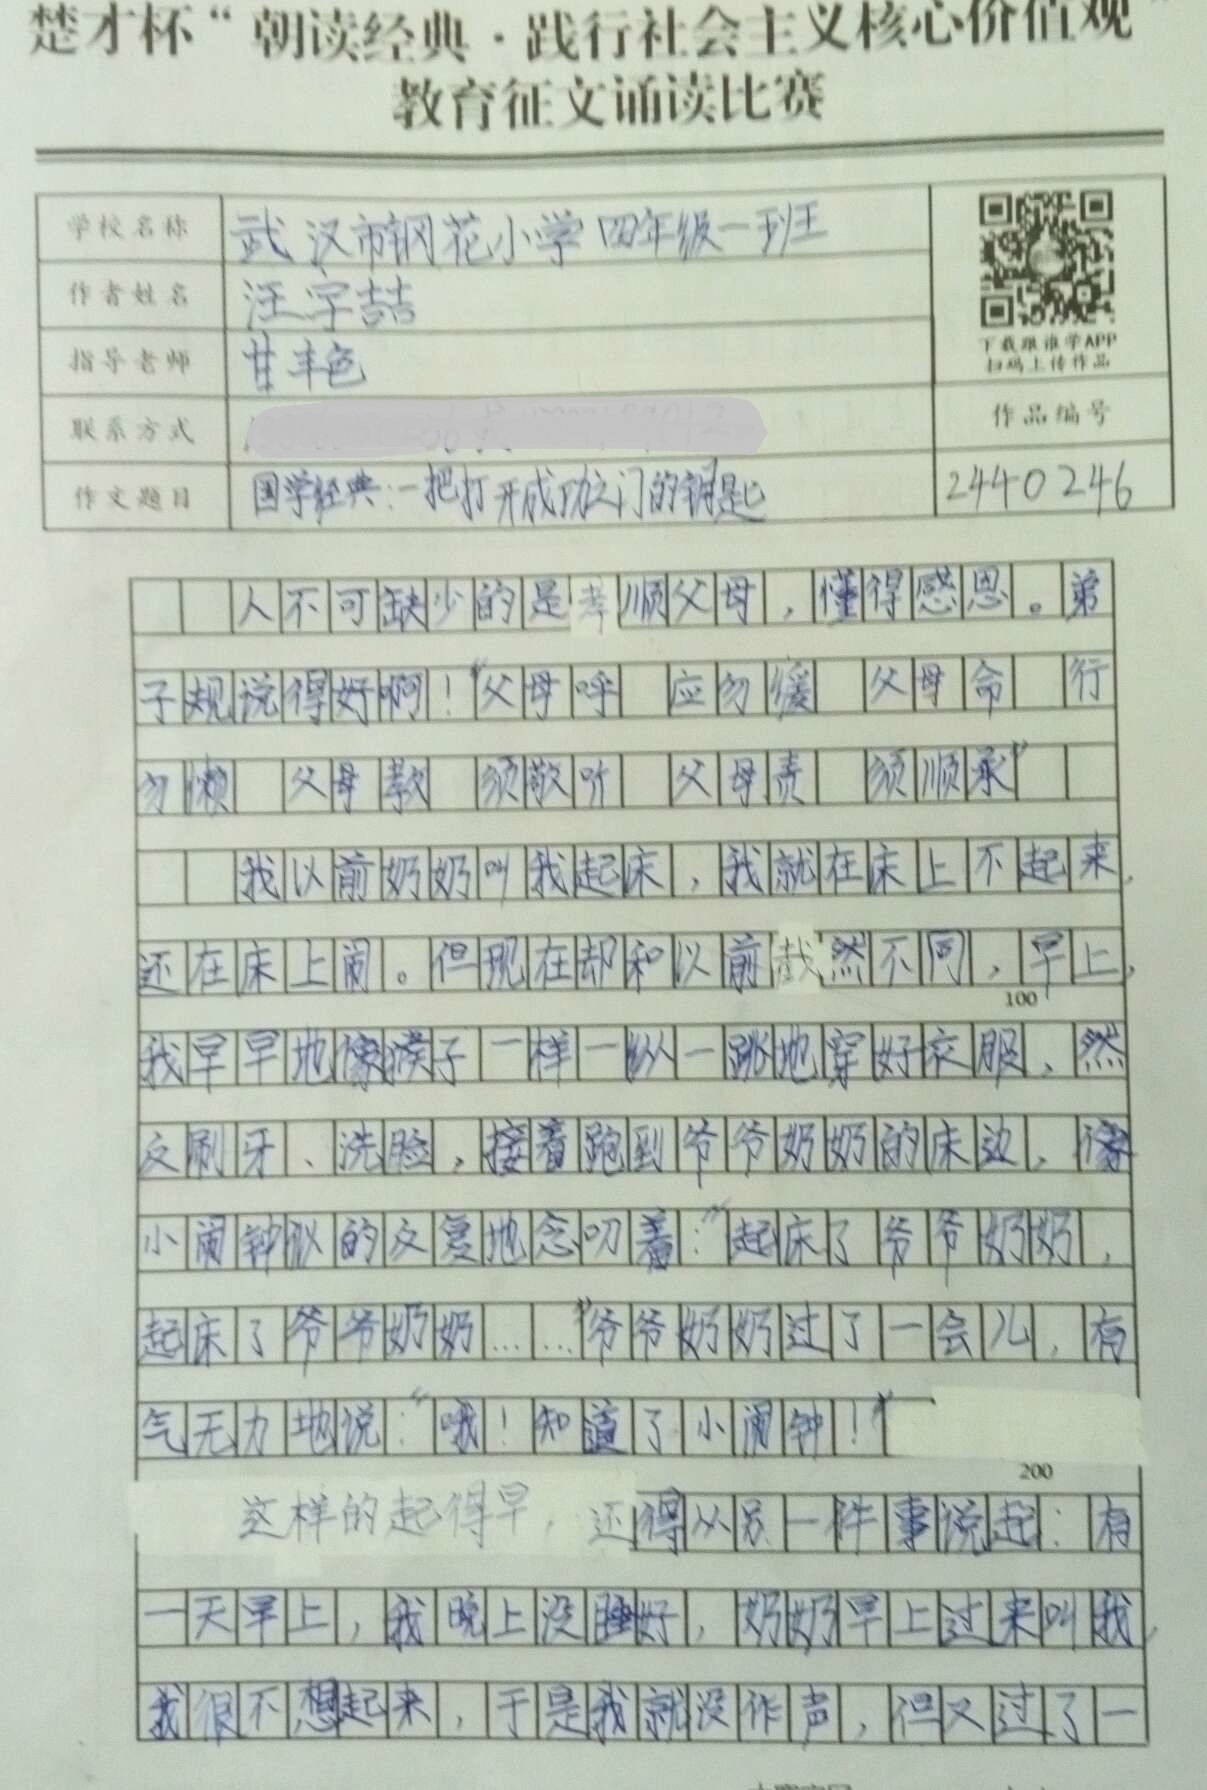 楚才杯“朝读经典·践行社会主义核心价值观”
教育征文诵读比赛
学校名称 武汉市钢花小学四年级一班
作者姓名 汪宇喆
指导老师 甘丰色
下载跟谁学APP
扫码上传作品
联系方式
作品编号
作文题目 国学经典:一把打开成功之门的钥匙
2440246
人不可缺少的是孝顺父母，懂得感恩。弟
子规说得好啊！“父母呼 应勿缓 父母命 行
勿懒 父母教 须敬听 父母责 须顺承”
我以前奶奶叫我起床，我就在床上不起来，
还在床上闹。但现在却和以前截然不同，早上，
100
我早早地像猴子一样一纵一跳地穿好衣服，然
反刷牙、洗脸，接着跑到爷爷奶奶的床边，像
小闹钟似的反复地念叨着：“起床了爷爷奶奶，
起床了爷爷奶奶……”爷爷奶奶过了一会儿，有
气无力地说：“哦！知道了小闹钟！”
200
这样的起得早，还得从另一件事说起：有
一天早上，我晚上没睡好，奶奶早上过来叫我，
我很不想起来，于是我就没作声，但又过了一